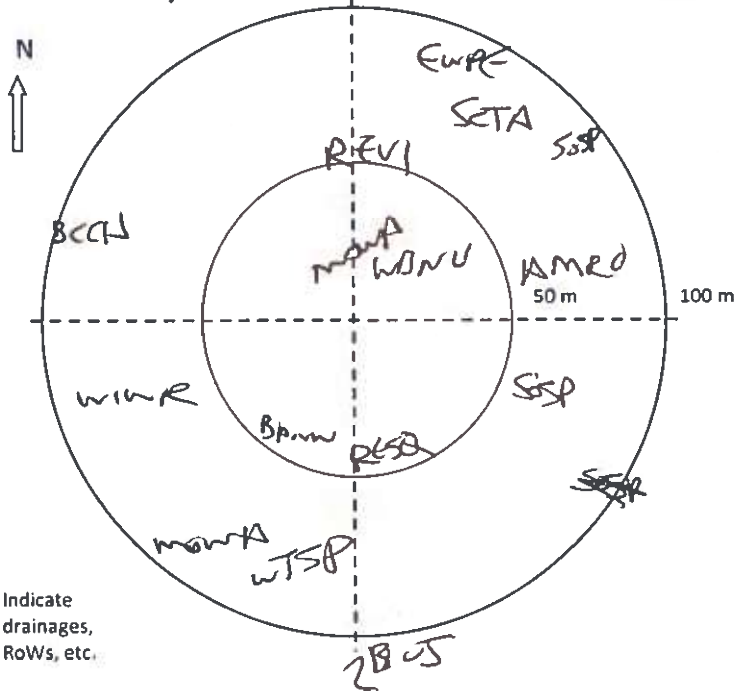 N
EWPE
SCTA
SOSP
REVI
BCCH
MOWA
WBNU
AMRO
50 m
100 m
WIWR
SOSP
RESQ
MOWA
WTSP
Indicate
drainages,
RoWs, etc.